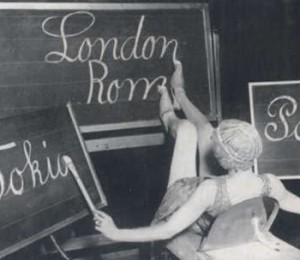 London
Rom
Tokio
Pa